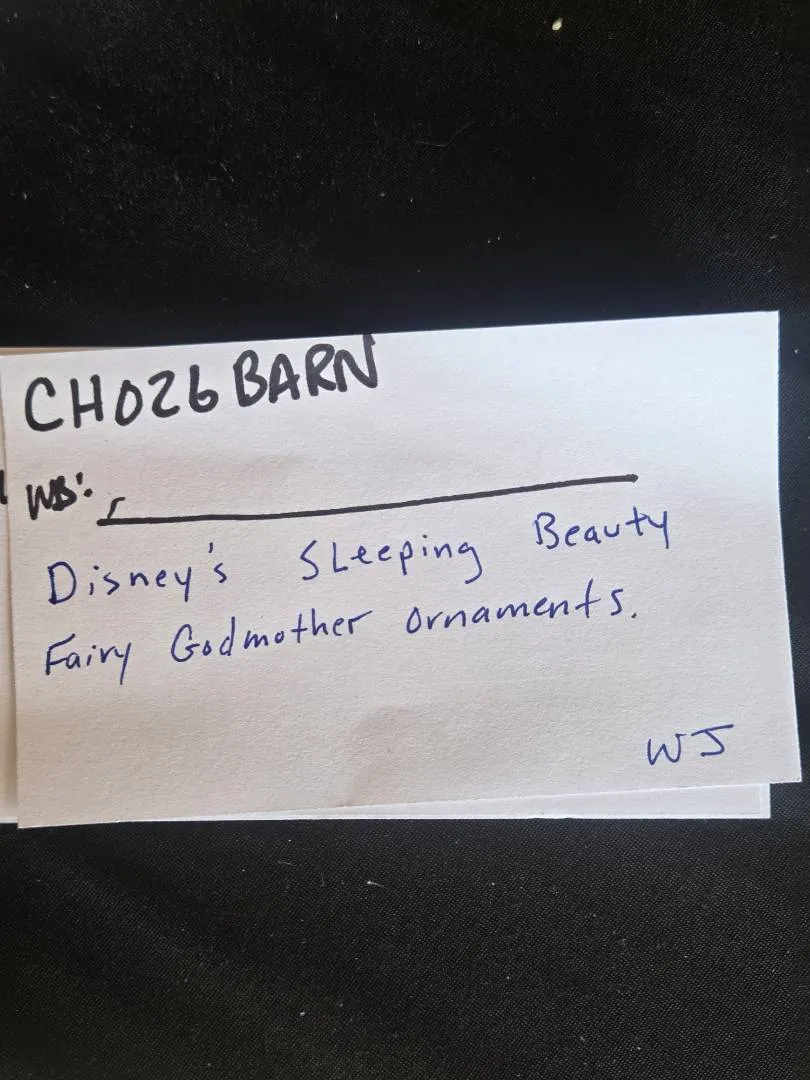 CH026 BARN
WB:
Disney's Sleeping Beauty
Fairy Godmother ornaments.
WJ